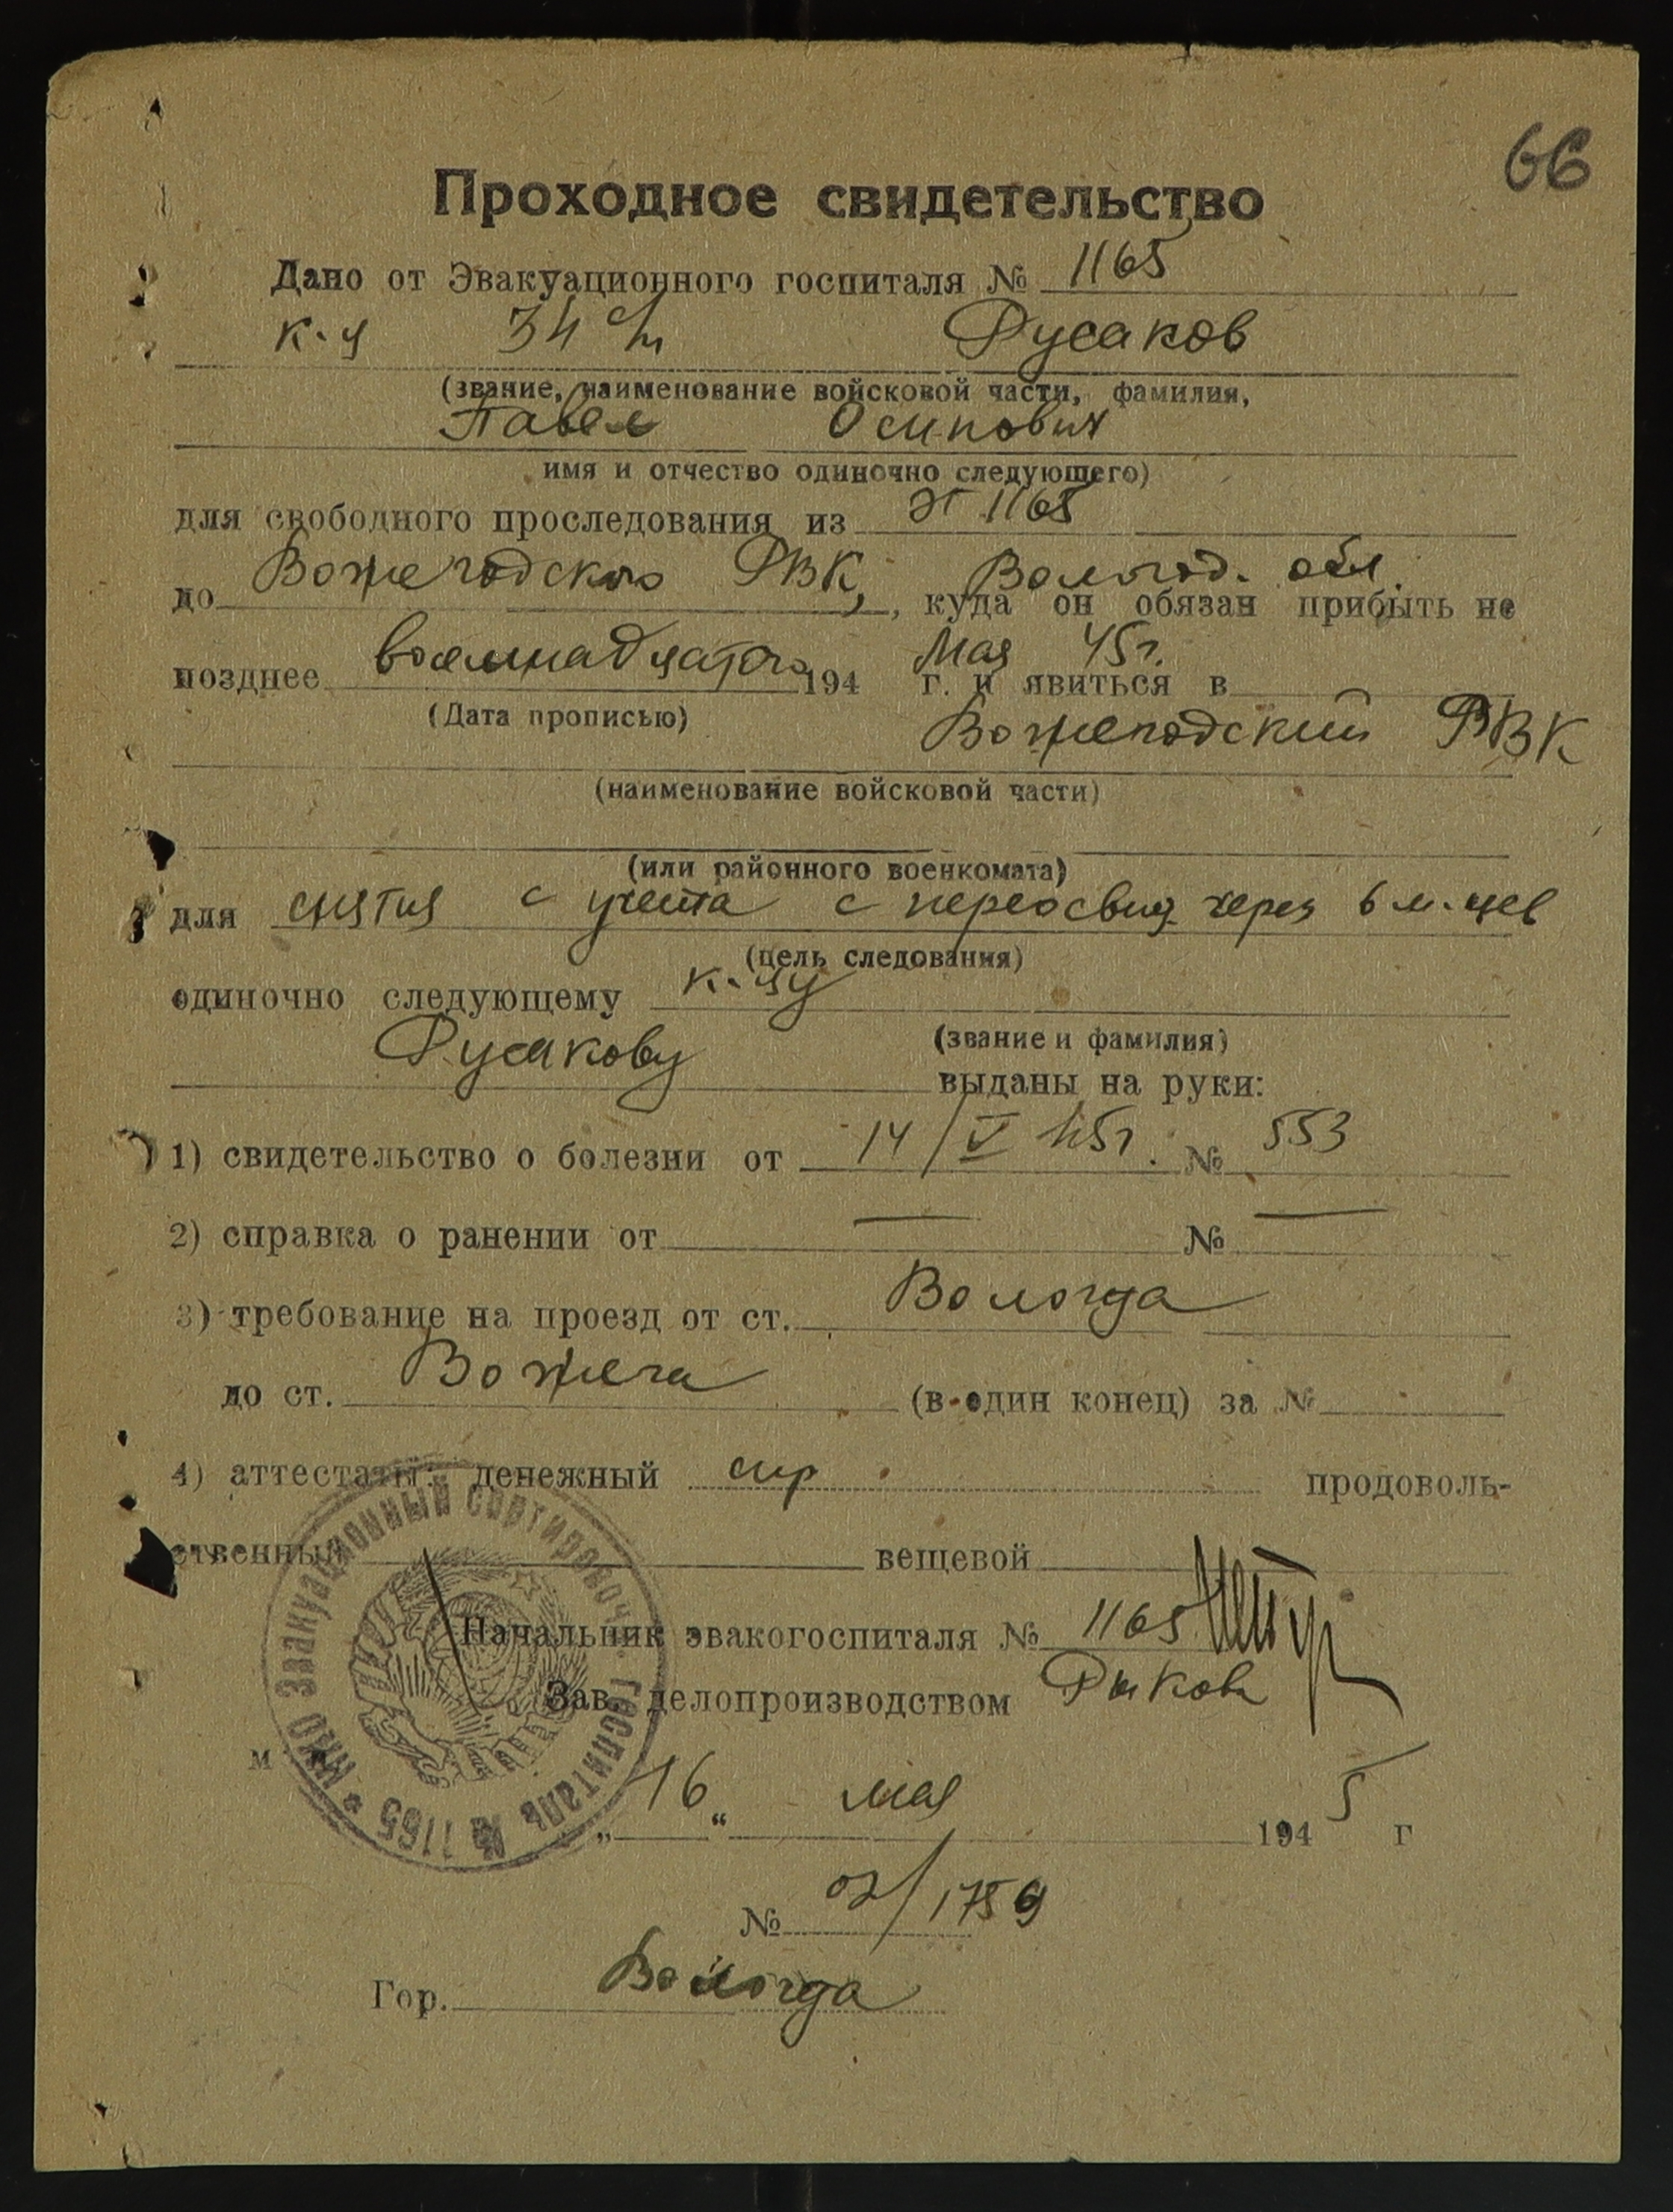 66
Проходное свидетельство
Дано от Эвакуационного госпиталя № 1165
к-ц 34 Русаков
(звание, наименование войсковой части, фамилия,
Павел Осипович
имя и отчество одиночно следующего)
для свободного проследования из эг 1165
до Вожегодского РВК, Вологод. обл.
, куда он обязан прибыть не
позднее восемнадцатого 194 Мая 45г. г. и явиться в
(Дата прописью)
Вожегодский РВК
(наименование войсковой части)
(или районного военкомата)
для снятия с учета с переосвид. через 6 м-цев
(цель следования)
одиночно следующему к-цу
Русакову
(звание и фамилия)
выданы на руки:
1) свидетельство о болезни от 14/V 45г. № 553
2) справка о ранении от — № —
3) требование на проезд от ст. Вологда
до ст. Вожега (в один конец) за №
4) аттестаты: денежный продоволь-
ственный вещевой
Начальник эвакогоспиталя № 1165
Зав. делопроизводством Рыков
м
НКО Эвакуационный сортировоч. госпиталь № 1165
„16“ мая 1945 г
№ 02/1759
Гор. Вологда